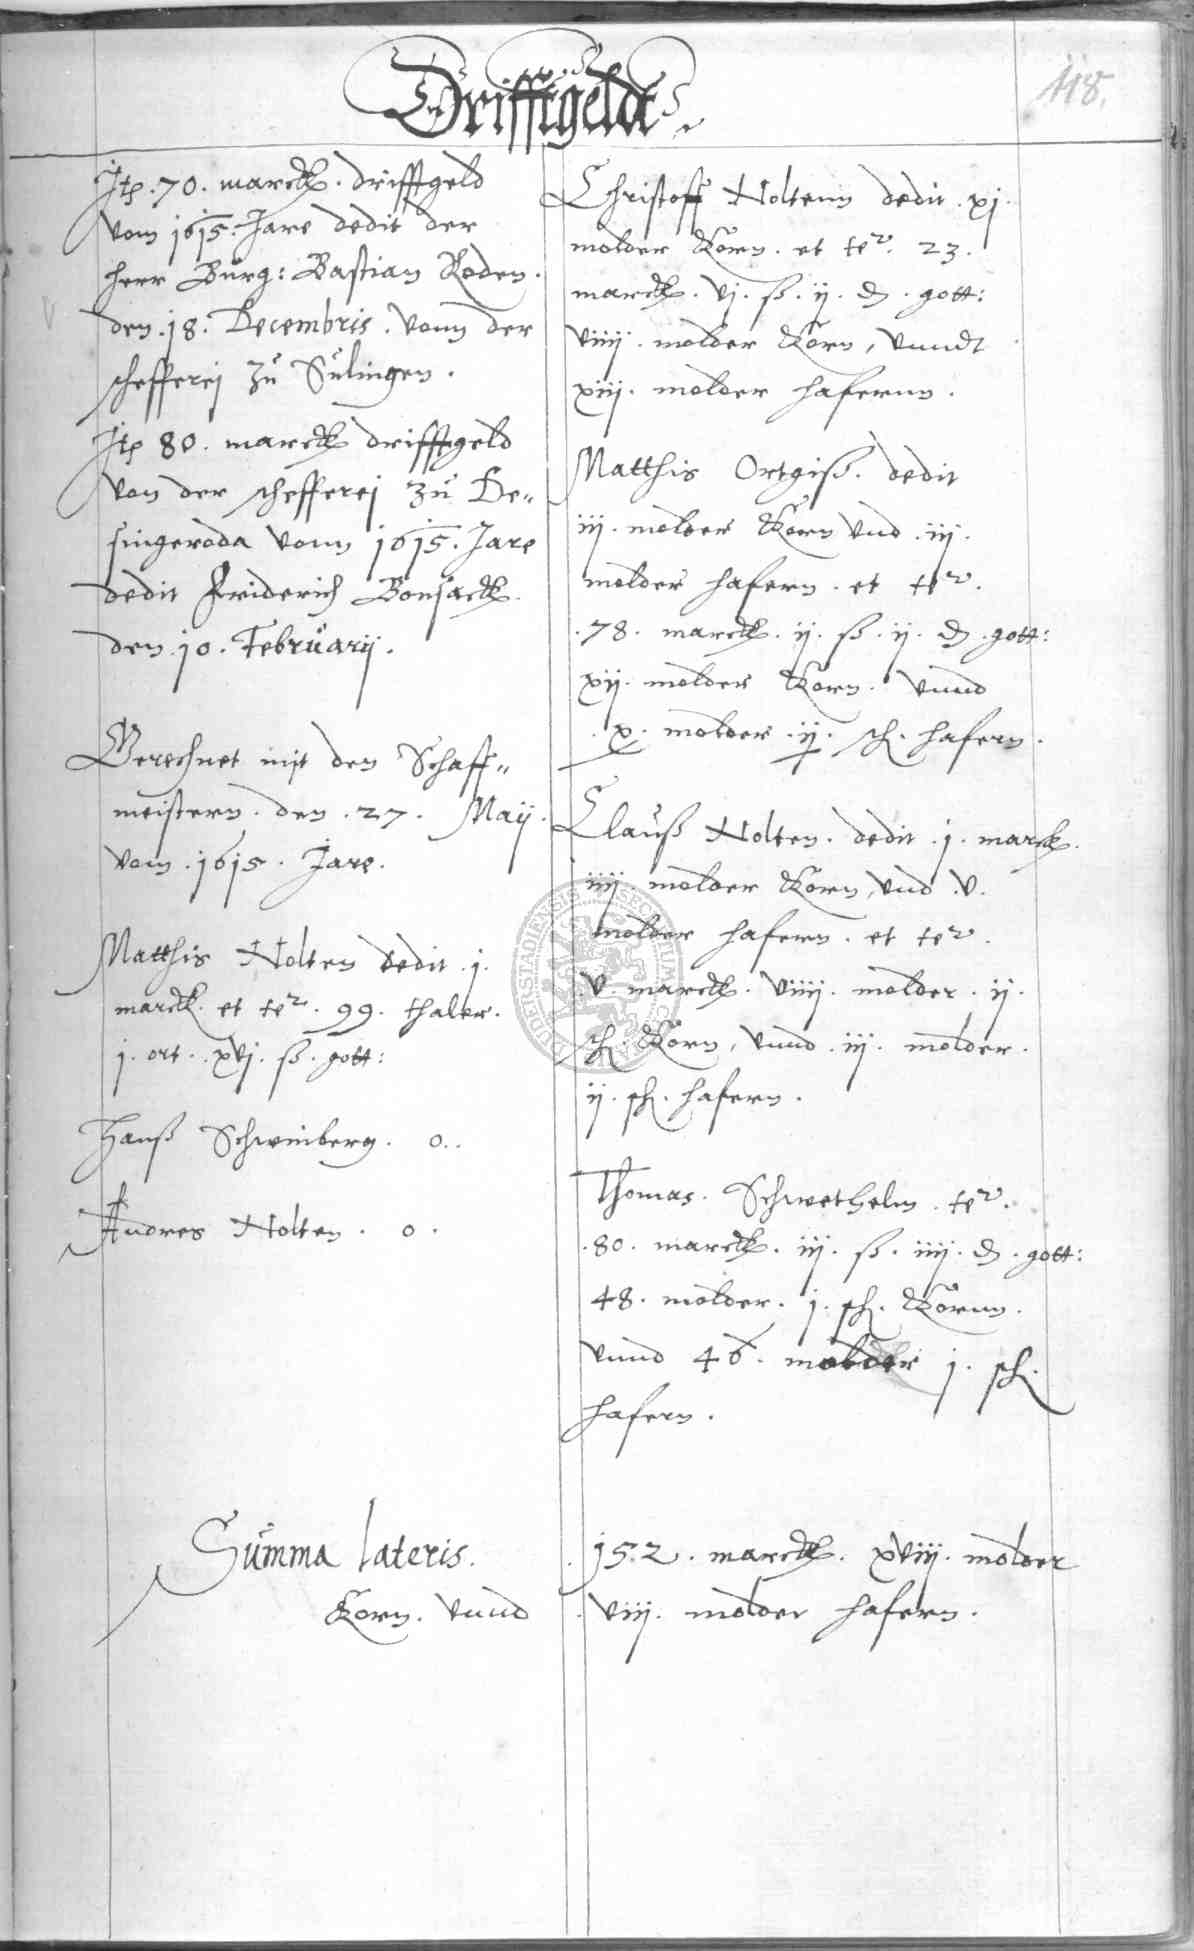 Drifftgeldt
118.
Itp .70. marck. drifftgeld
vom 1615. Jare dedit der
herr Bürg: Bastian Roden.
den .18. Decembris. vonn der
schefferej zü Sülingen.
Itp 80. marck drifftgeld
von der schefferej zü De„
singeroda vonn 1615. Jare
dedit Friderich Bonsack.
den .10. Februarij.
Gerechnet mit den Schaff„
meistern. den .27. Maij.
vom .1615. Jare.
Matthis Nolten dedit .j.
marck. et ter. 99. thaler.
j. ort. xvj. ß. gott:
Hanß Schweinberg. o..
Andres Nolten. o.
Christoff Noltenn dedit .xj.
molder Korn. et ter. 23.
marck. vj. ß. ij. d. gott:
viiij. molder Korn, vnndt
xiij. molder hafernn.
Matthis Ortgiß. dedit
iij. molder Korn vnd .iij.
molder hafern. et ter.
.78. marck. ij. ß. ij. d. gott:
xij. molder Korn. vnnd
.x. molder .ij. sch. hafern.
Clauß Nolten. dedit .j. marck.
iiij. molder Korn, vnd .v.
molder hafern. et ter.
.v. marck. viiij. molder. ij.
sch. Korn, vnnd .iij. molder.
ij. sch. hafern.
Thomas. Schwethelm. ter.
.80. marck. iij. ß. iiij. d. gott:
48. molder. j. sch. Kornn.
vnnd 46. molder j. sch.
hafern.
Summa lateris. 152. marck. xviij. molder
Korn. vnnd viij. molder hafern.
DUDERSTADIENSIS SECRETUM